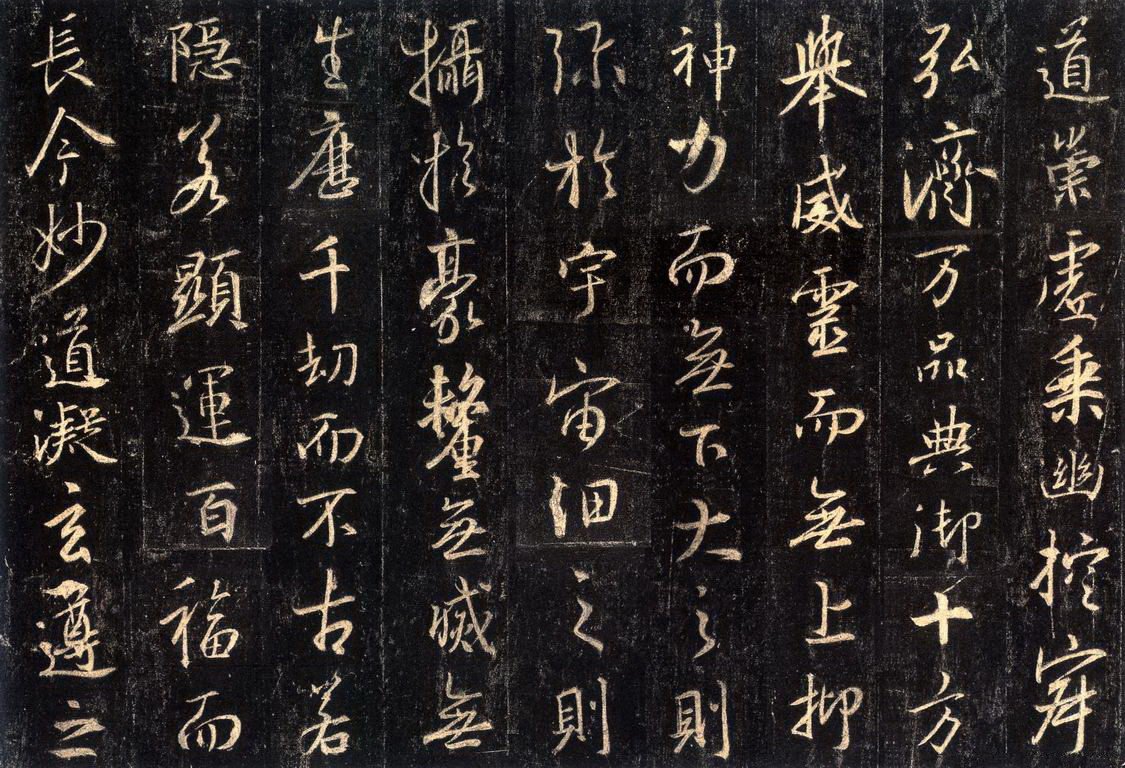 道崇虛乘幽控寂
弘濟万品典御十方
舉威靈而無上抑
神力而無下大之則
弥於宇宙細之則
攝於豪釐無滅無
生歷千劫而不古若
隱若顯運百福而
長今妙道凝玄遵之